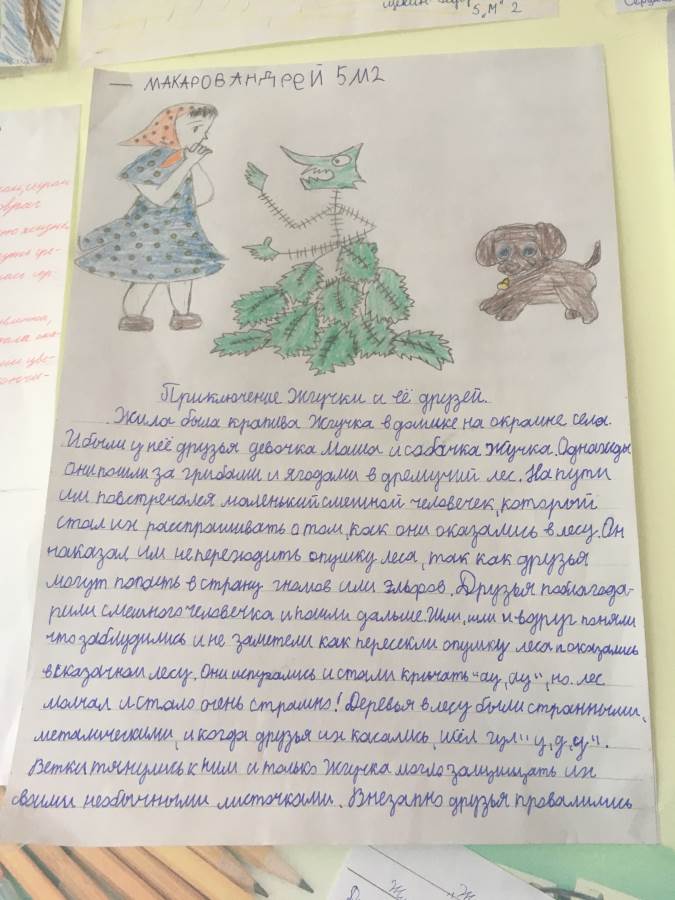 5„М" 2
— МАКАРОВ АНДРЕЙ 5М2
Приключение Жгучки и её друзей.
Жила была крапива Жгучка в домике на окраине села.
И были у неё друзья девочка Маша и собачка Жучка. Однажды
они пошли за грибами и ягодами в дремучий лес. На пути
им повстречался маленький смешной человечек, который
стал их расспрашивать о том, как они оказались в лесу. Он
наказал им не переходить опушку леса, так как друзья
могут попасть в страну гномов или эльфов. Друзья поблагода-
рили смешного человечка и пошли дальше. Шли, шли и вдруг поняли
что заблудились и не заметели как пересекли опушку леса и оказались
в сказачном лесу. Они испугались и стали кричать "ау, ау", но лес
молчал и стало очень страшно! Деревья в лесу были странными,
металическими, и когда друзья их касались, шёл гул "у, д, у".
Ветки тянулись к ним и только Жгучка могла защищать их
своими необычными листочками. Внезапно друзья провалились